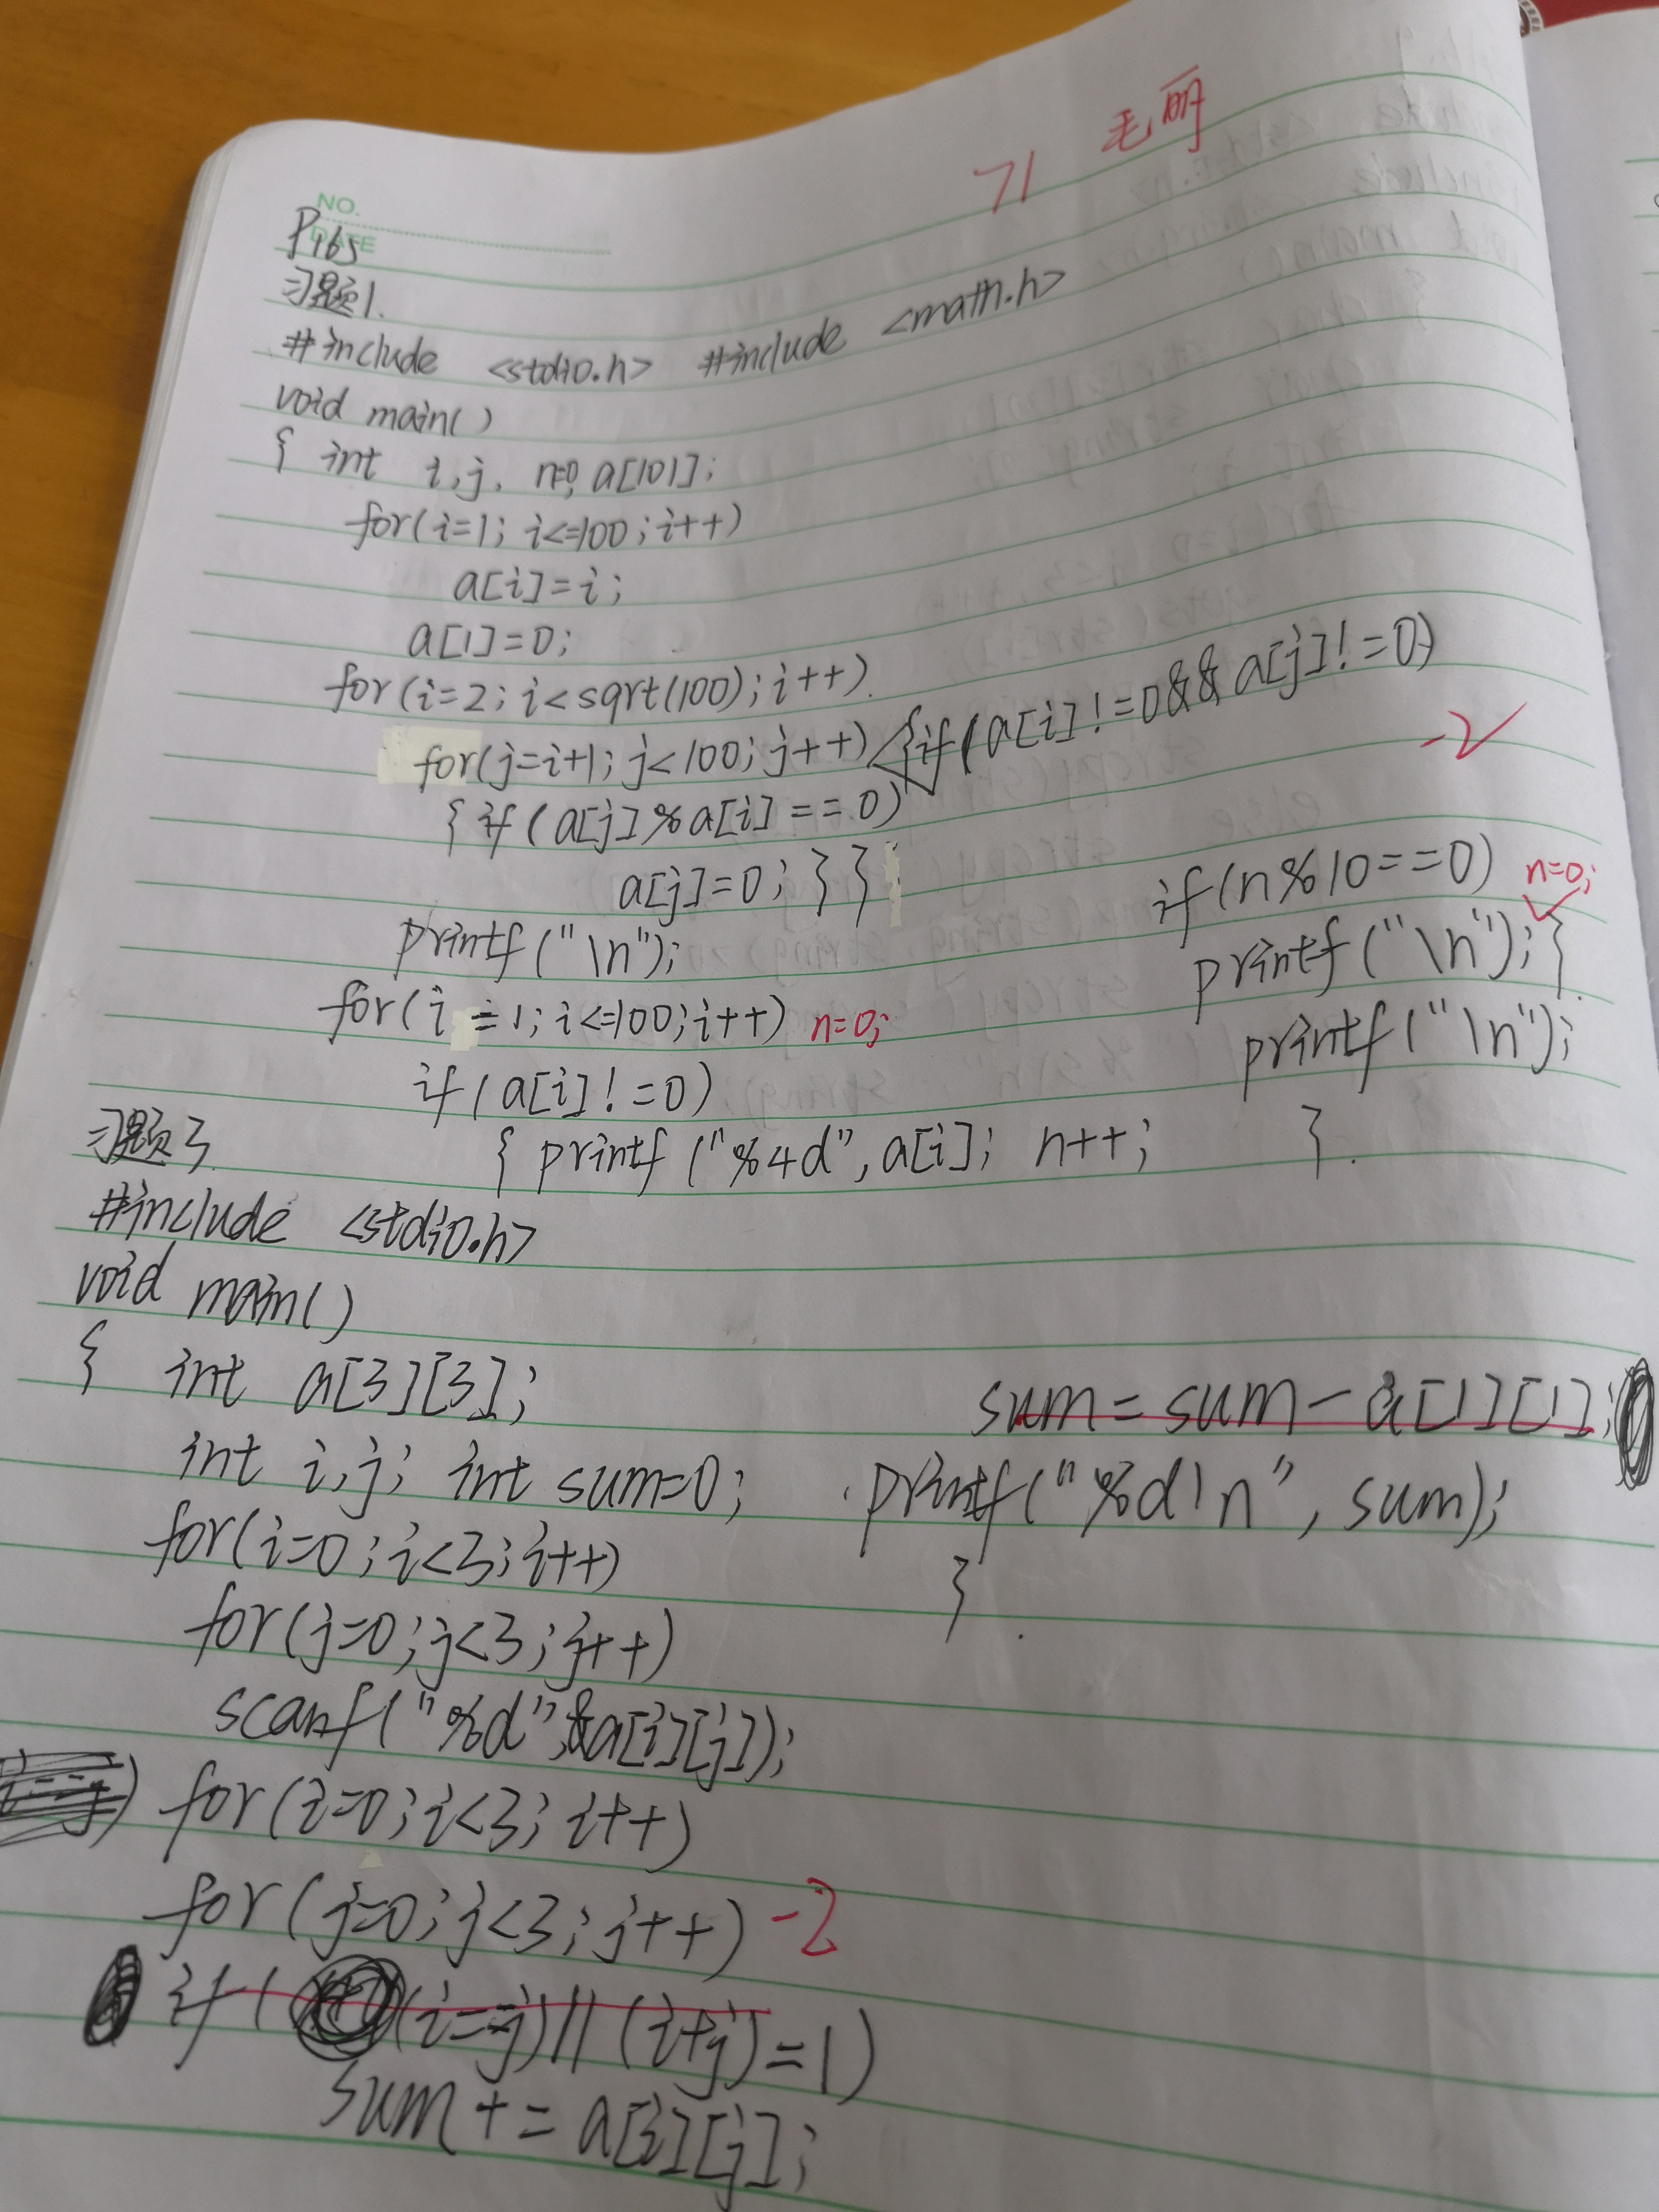 71 毛丽
NO.
DATE
P165
习题1.
#include <stdio.h> #include <math.h>
void main()
{ int i,j, n=0, a[101];
for(i=1; i<=100; i++)
a[i]=i;
a[1]=0;
for(i=2; i<sqrt(100); i++)
for(j=i+1; j<100; j++) {if(a[i]!=0&&a[j]!=0)
-2
{ if(a[j]%a[i]==0)
a[j]=0; } }
printf("\n");
for(i=1; i<=100; i++) n=0;
if(a[i]!=0)
{ printf("%4d",a[i]; n++;
if(n%10==0) n=0;
printf("\n"); }
printf("\n");
}
习题3
#include <stdio.h>
void main()
{ int a[3][3];
int i,j; int sum=0;
for(i=0; i<3; i++)
for(j=0; j<3; j++)
scanf("%d",&a[i][j]);
for(i=0; i<3; i++)
for(j=0; j<3; j++) -2
if((i==j)||(i+j)=1)
sum+=a[i][j];
sum=sum-a[1][1];
printf("%d\n",sum);
}